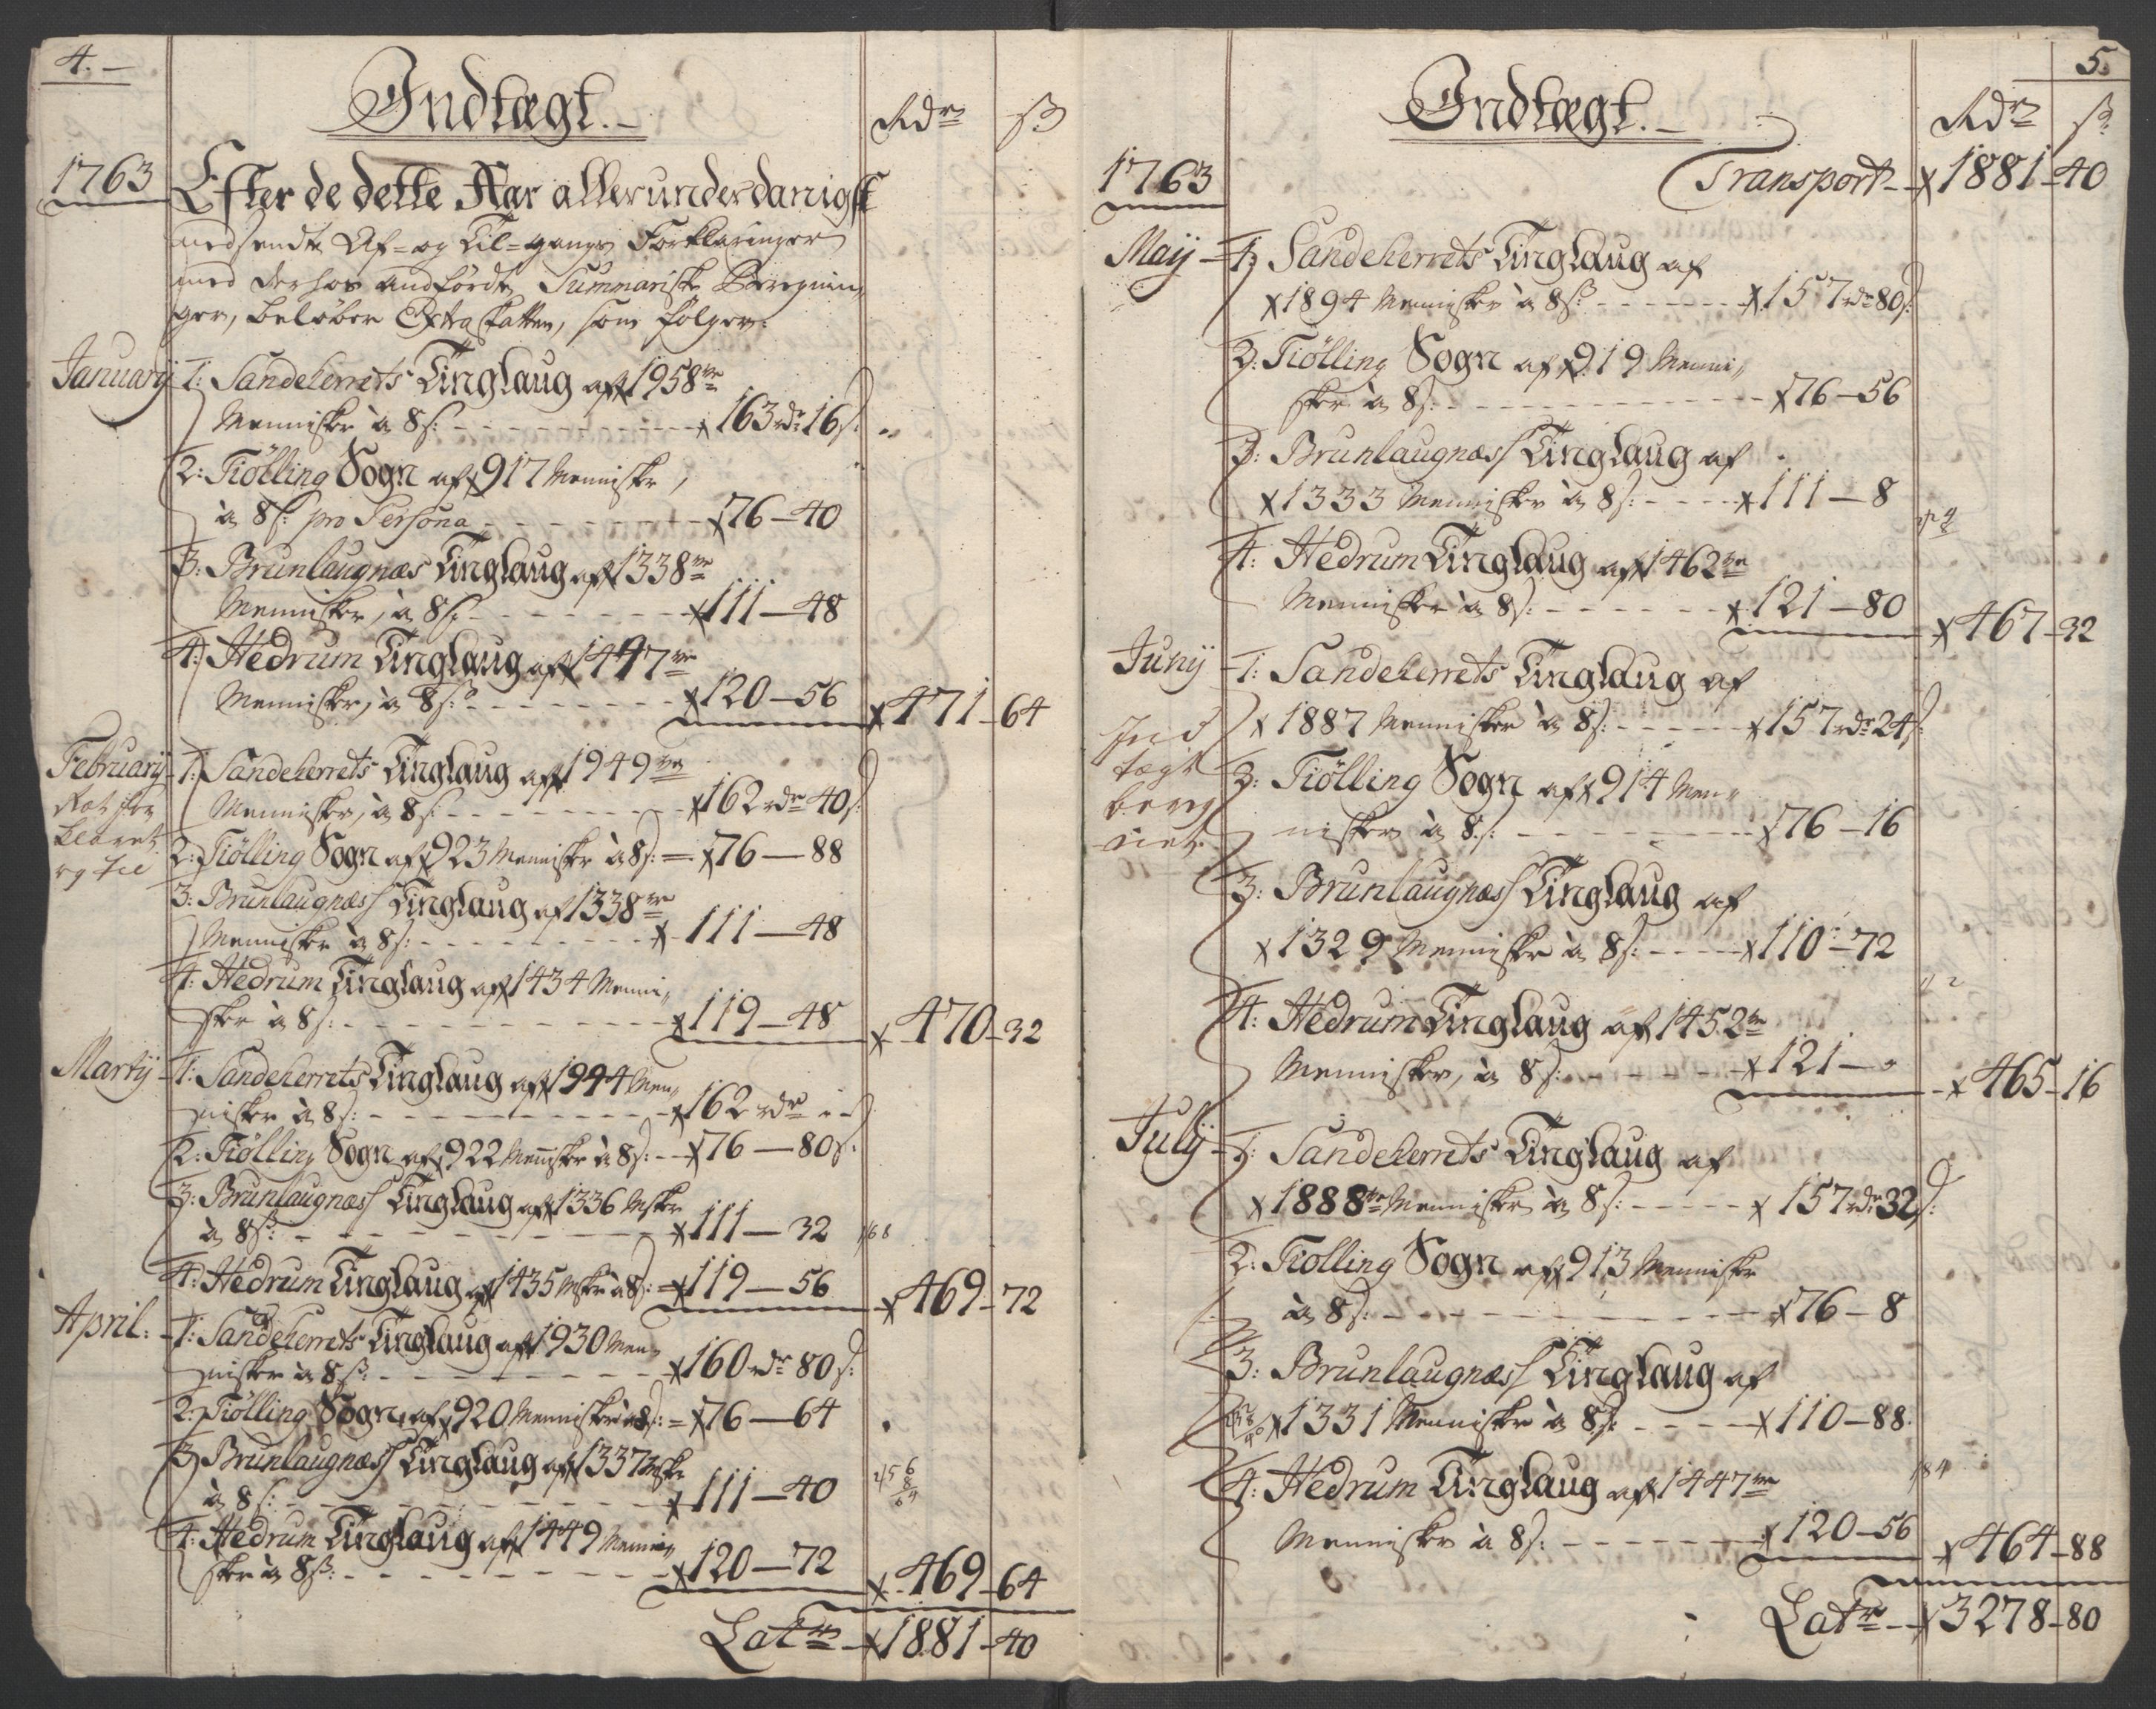 4.
Indtægt.
Rdr ß
1763 Efter de dette Aar allerunderdanigst
medsendte Af- og Til-gangs Forklaringer
med derhos andførde Summariske Beregnin-
ger, beløber Extra skatten, som følger:
January 1: Sandeherrets Tinglaug aff 1958 ve
Mennisker à 8 s: 163 rdr 16 s.
2: Tiølling Sogn aff 917 Menniske,
à 8 s: pro Persona 76 - 40
3: Brunlaugnæs Tinglaug aff 1338 ve
Mennisker, à 8 s: 111 - 48
4: Hedrum Tinglaug aff 1447 ve
Mennisker, à 8 s: 120 - 56 471 - 64
February 1: Sandeherrets Tinglaug aff 1949 ve
Mennisker, à 8 s: 162 rdr 40 s:
2: Tiølling Sogn aff 923 Menniske à 8 s: 76 - 88
3: Brunlaugnæss Tinglaug af 1338 ve
Menniske à 8 s: 111 - 48
4: Hedrum Tinglaug aff 1434 Menni-
sker à 8 s: 119 - 48 470 - 32
Martÿ 1: Sandeherrets Tinglaug aff 1944 Men-
nisker à 8 s: 162 rdr
2: Tiølling Sogn aff 922 Menniske à 8 s: 76 - 80 s:
3: Brunlaugnæss Tinglaug aff 1336 Mske
à 8 s: 111 - 32 168
4: Hedrum Tinglaug af 1435 Mske à 8 s: 119 - 56 469 - 72
April: 1: Sandeherrets Tinglaug aff 1930 Men-
nisker à 8 ß: 160 rdr 80 s:
2: Tiølling Sogn, aff 920 Menniske à 8 s: 76 - 64
3: Brunlaugnæss Tinglaug aff 1337 Mske
à 8 s: 111 - 40
4: Hedrum Tinglaug aff 1449 Menni-
sker à 8 ß: 120 - 72 469 - 64
Latr 1881 - 40
5.
Indtægt.
Rdr ß
1763
Transport 1881 - 40
Maÿ 1: Sandeherrets Tinglaug af
1894 Mennisker à 8 s: 157 rdr 80 s:
2: Tiølling Sogn aff 919 Menni-
sker à 8 s: 76 - 56
3: Brunlaugnæss Tinglaug af
1333 Mennisker à 8 s: 111 - 8
4: Hedrum Tinglaug aff 1462 ve
Mennisker à 8 s: 121 - 80 467 - 32
Junÿ 1: Sandeherrets Tinglaug af
1887 Mennisker à 8 s: 157 rdr 24 s:
2: Tiølling Sogn aff 914 Men-
nisker à 8 s: 76 - 16
3: Brunlaugnæss Tinglaug af
1329 Menniske à 8 s: 110 - 72
4: Hedrum Tinglaug af 1452 ve
Mennisker, à 8 s: 121 - 465 - 16
Julÿ 1: Sandeherrets Tinglaug af
1888 ve Mennisker à 8 s: 157 rdr 32 s:
2: Tiolling Sogn aff 913 Menniske
à 8 s: 76 - 8
3: Brunlaugnæss Tinglaug af
1331 Menniske à 8 s: 110 - 88
4: Hedrum Tinglaug aff 1447 ve
Mennisker à 8 s: 120 - 56 464 - 88
Latr 3278 - 80